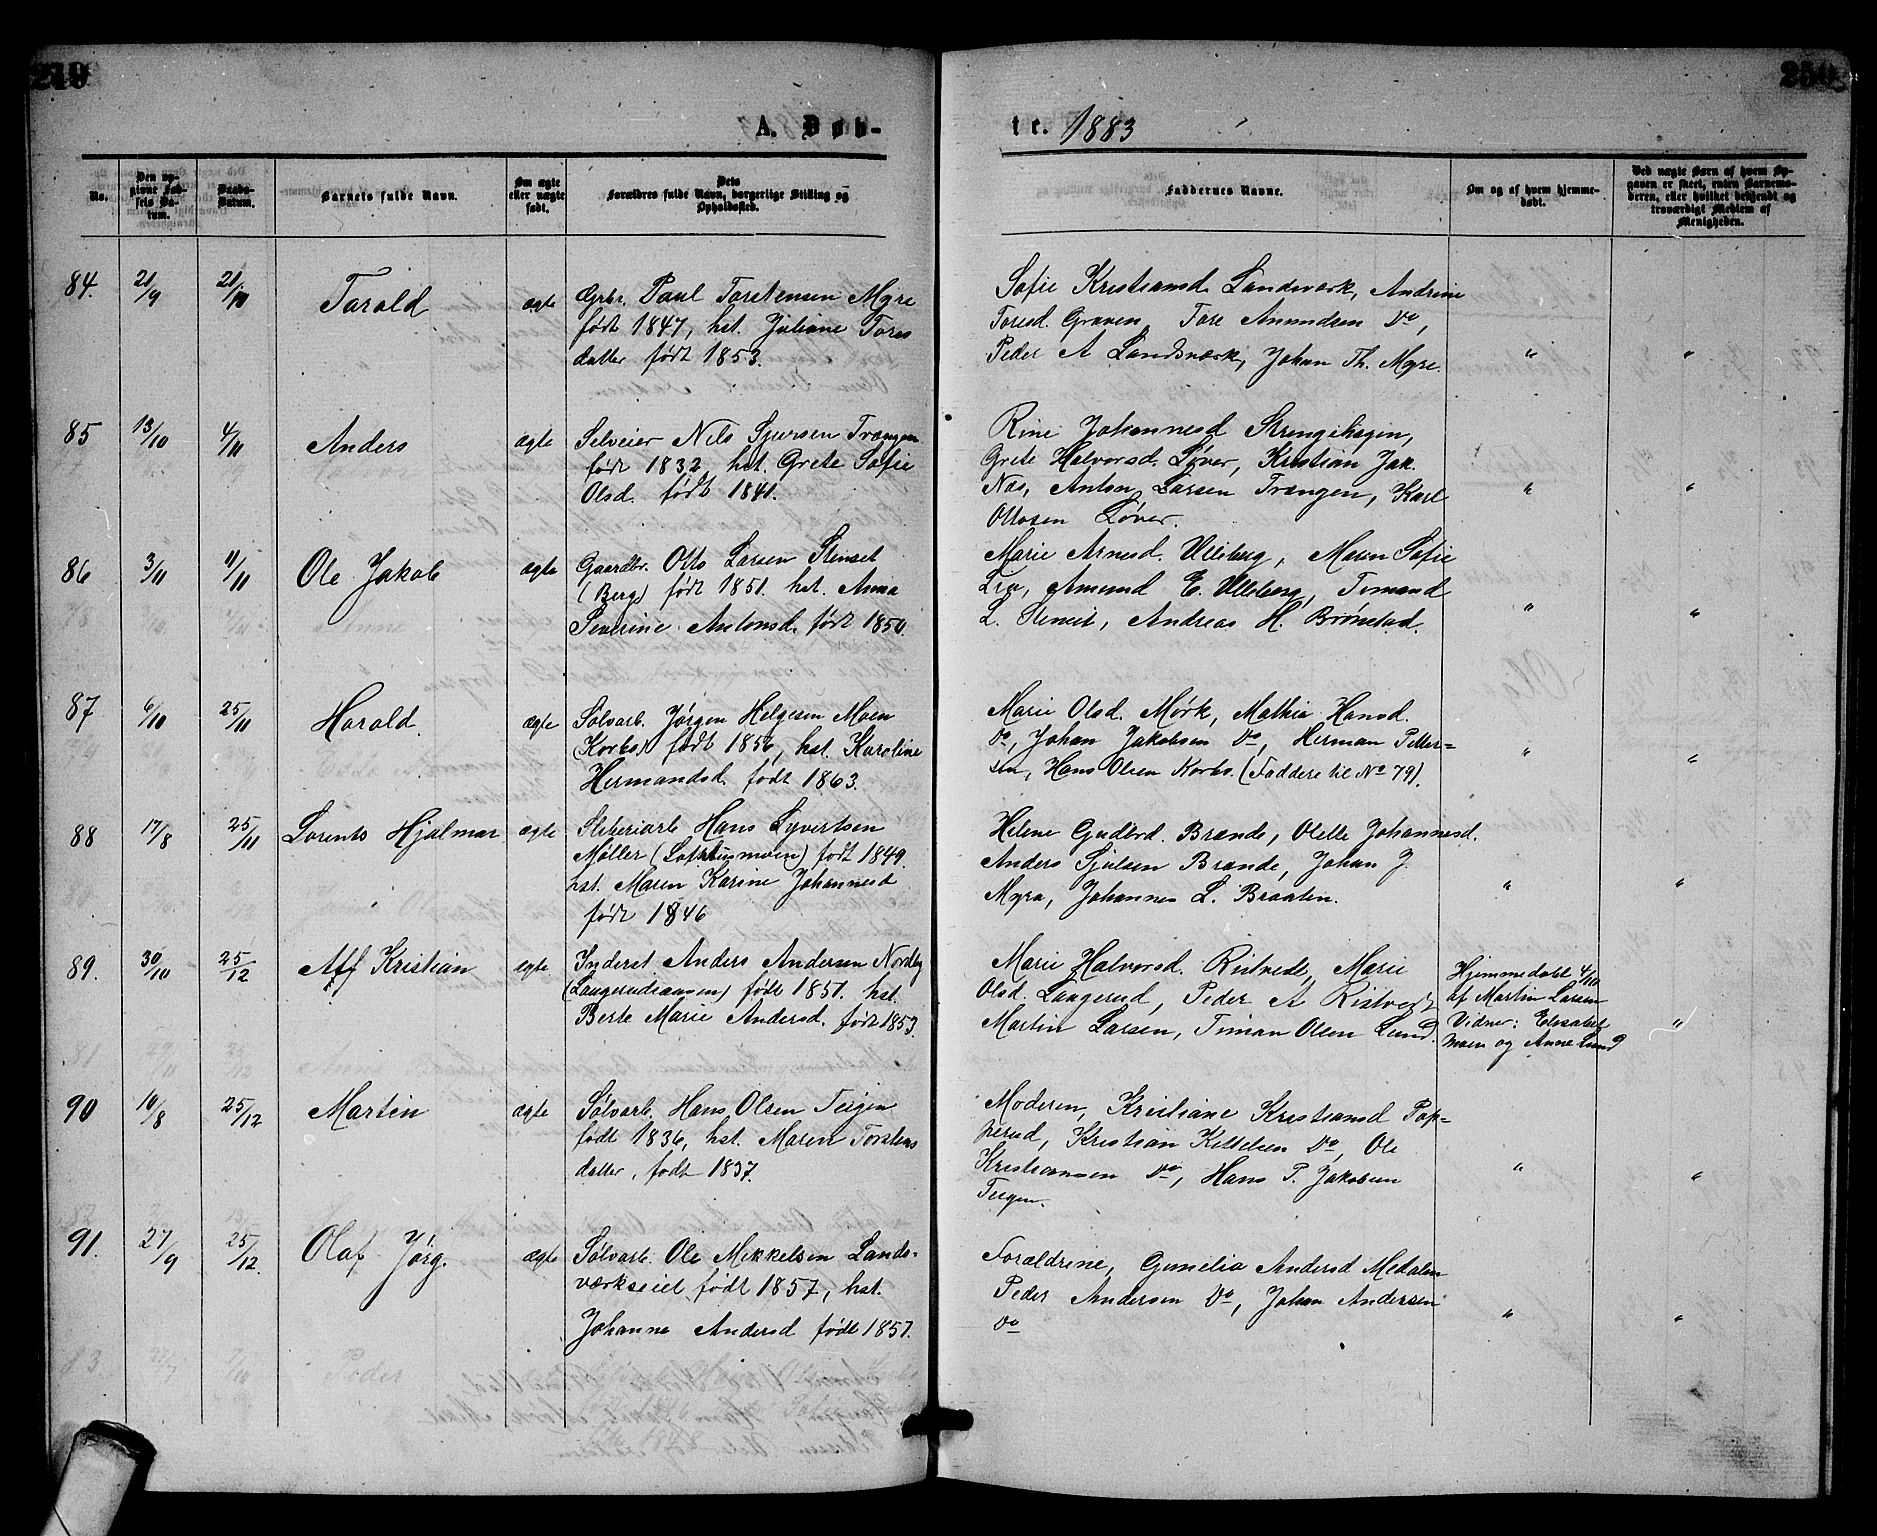 249
250
A. Døb-
te. 1883
No.
Den opgivne Fødsels Datum.
Daabs-Datum.
Barnets fulde Navn.
Om ægte eller uægte født.
Forældres fulde Navn, borgerlige Stilling og Opholdssted.
Faddernes Navne.
Om og af hvem hjemmedøbt.
Ved uægte Børn af hvem Opgaven er skeet, enten Barnemoderen, eller hvilket bekjendt og troværdigt Medlem af Menigheden.
84. 21/9 21/10 Tarald ægte Grbr. Paul Torstensen Myre
født 1847, hst. Juliane Tores
datter født 1853.
Sofie Kristiansd. Landsværk, Andrine
Toresd. Graven, Tore Amundsen Do,
Peder A Landsværk, Johan Th. Myre. " "
85 13/10 4/11 Anders ægte Selveier Nils Sjursen Trængen
født 1832, hst. Grete Sofie
Olsd. født 1841.
Rine Johannesd Strengehagen,
Grete Halvorsd. Løver, Kristian Jak.
Næs, Anton Larsen Trængen, Karl
Ottosen Løver. " "
86 3/11 11/11 Ole Jakob ægte Gaardbr. Otto Larsen Stenset
(Berg) født 1851. hst. Anna
Severine Antonsd. født 1850.
Marie Arnesd. Ulleberg, Maren Sofie
Lia, Amund E. Ulleberg, Tomand
L. Stenset, Andreas H. Brønstad. " "
87 6/10 25/11 Harald. ægte Sølvarb. Jørgen Helgesen Moen
(Korbs) født 1856, hst. Karoline
Hermandsd. født 1863.
Marie Olsd. Mørk, Mathia Hansd.
Do, Johan Jakobsen Do, Herman Petter-
sen, Hans Olsen Korbs. (Faddere til No 79). " "
88 17/8 25/11 Lorents Hjalmar ægte Sliberiarb Hans Syvertsen
Møller (Lofthusmoen) født 1849.
hst. Maren Karine Johannesd
født 1846
Helene Gudbrd. Brænde, Olette Johannesd.
Anders Sjulsen Brænde, Johan J.
Myra, Johannes L. Braaten. " "
89. 30/10 25/12 Aff Kristian egte Inderst. Anders Andersen Nordby
(Langerudeansen) født 1851. hst.
Berte Marie Andersd. født 1853
Marie Halvorsd. Ristvedt, Marie
Olsd. Langerud, Peder A Ristvedt
Martin Larsen, Timan Olsen Lund.
Hjemmedøbt 4/11
af Martin Larsen
Vidner: Elisabet
Moen og Anne Lund "
90 10/8 25/12 Martin ægte Sølvarb. Hans Olsen Teigen
født 1836, hst. Maren Torstens
datter, født 1837.
Moderen, Kristiane Kristiansd Pop-
perud, Kristian Kittelsen Do, Ole
Kristiansen Do, Hans P. Jakobsen
Teigen. " "
91. 27/9 25/12. Olaf Jørg. ægte Sølvarb. Ole Mikkelsen Lands-
værkseiet født 1857, hst.
Johanne Andersd født 1857.
Forældrene, Gunelia Andersd Medalen
Peder Andersen Do, Johan Andersen
Do " "